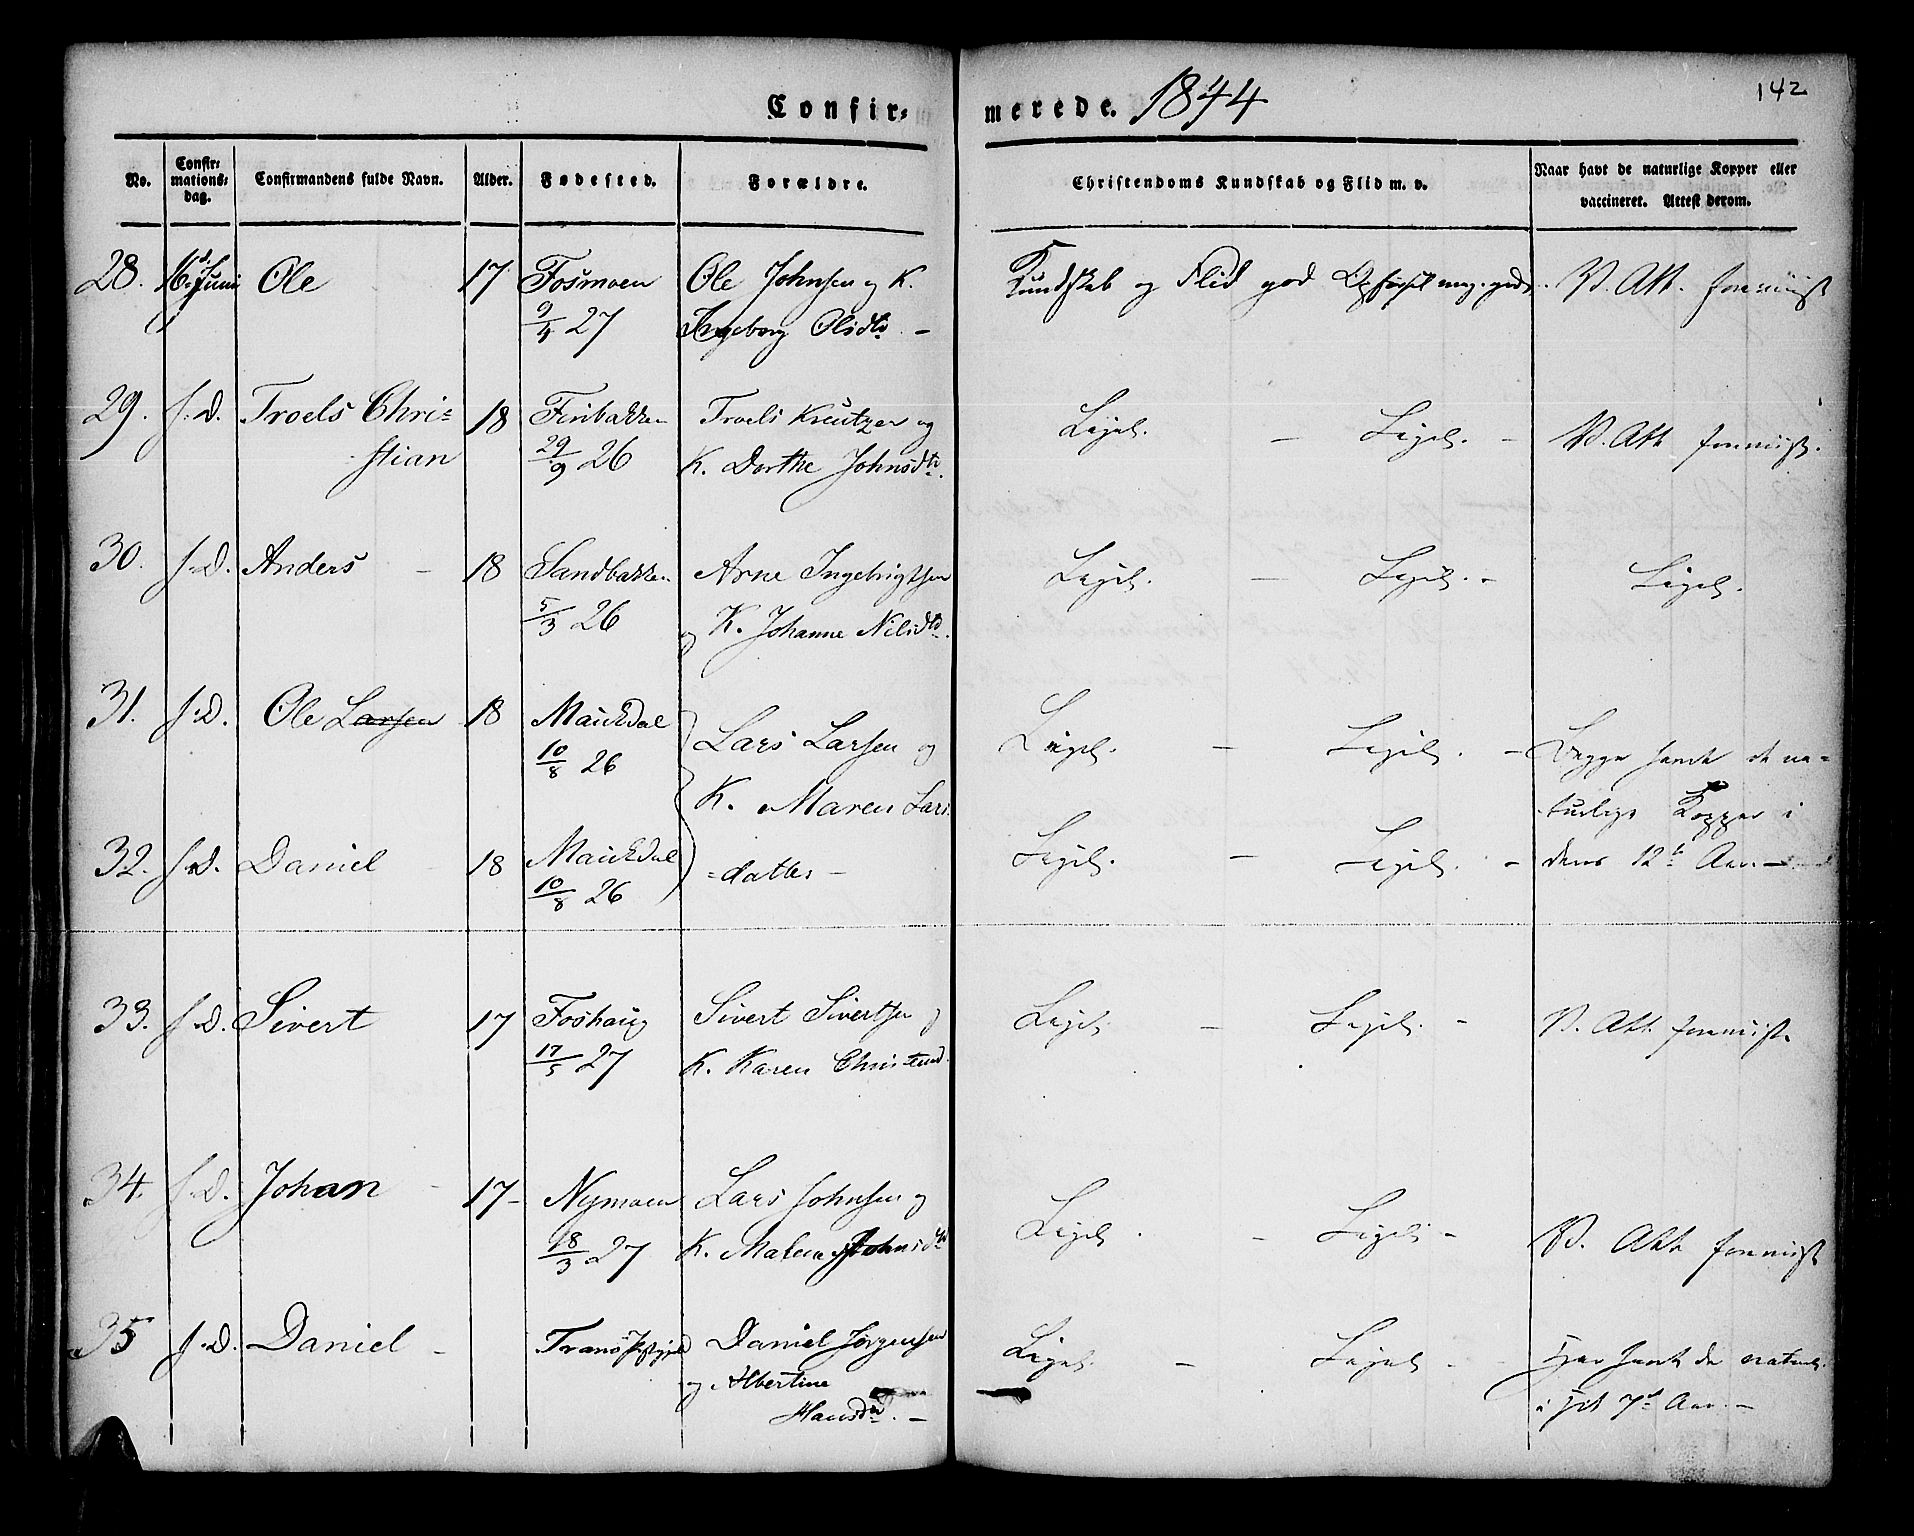 Confir= merede. 1844
142
No.
Confir=
mations=
dag.
Confirmandens fulde Navn.
Alder.
Fødested.
Forældre.
Christendoms Kundskab og Flid m. v.
Naar havt de naturlige Kopper eller
vaccineret. Attest derom.
28. 16d. Juni Ole 17 Fosmoen Ole Johnsen og K. Kundskab og Flid god Opførsel meg. god. V. Att. foreviist
9/4 27 Ingeborg Olsdtr. -
29. s. D. Troels Chri= 18 Finbakken Troels Kreutzer og Ligel. - Ligel. - V. Att. foreviist.
stian 29/9 26 K. Dorthe Johnsdtr.
30. s. D. Anders - 18 Sandbakken Arne Ingebrigtsen Ligel. - Ligel. - Ligel.
5/3 26 og K. Johanne Nilsdtr.
31. s. D. Ole Larsen 18 Maukdal Lars Larsen og Ligel. - Ligel. - Begge havt de na=
10/8 26 K. Maren Lars turlige Kopper i
32. s. D. Daniel - 18 Maukdal =datter - Ligel. - Ligel. - deres 12te Aar. -
10/8 26
33. s. D. Sivert 17 Foshaug Sivert Sivertsen og Ligel. - Ligel. - V. Att. foreviist.
17/5 27 K. Karen Christensd.
34. s. D. Johan - 17 - Nymoen Lars Johnsen og Ligel. - Ligel. - V. Att. foreviist
18/3 27 K. Malena Johnsdtr
35 s. D. Daniel - Tromsø Daniel Jørgensen Ligel. - Ligel. - Har havt de naturl.
og Albertine i sit 7de Aar. -
Hansdtr. -